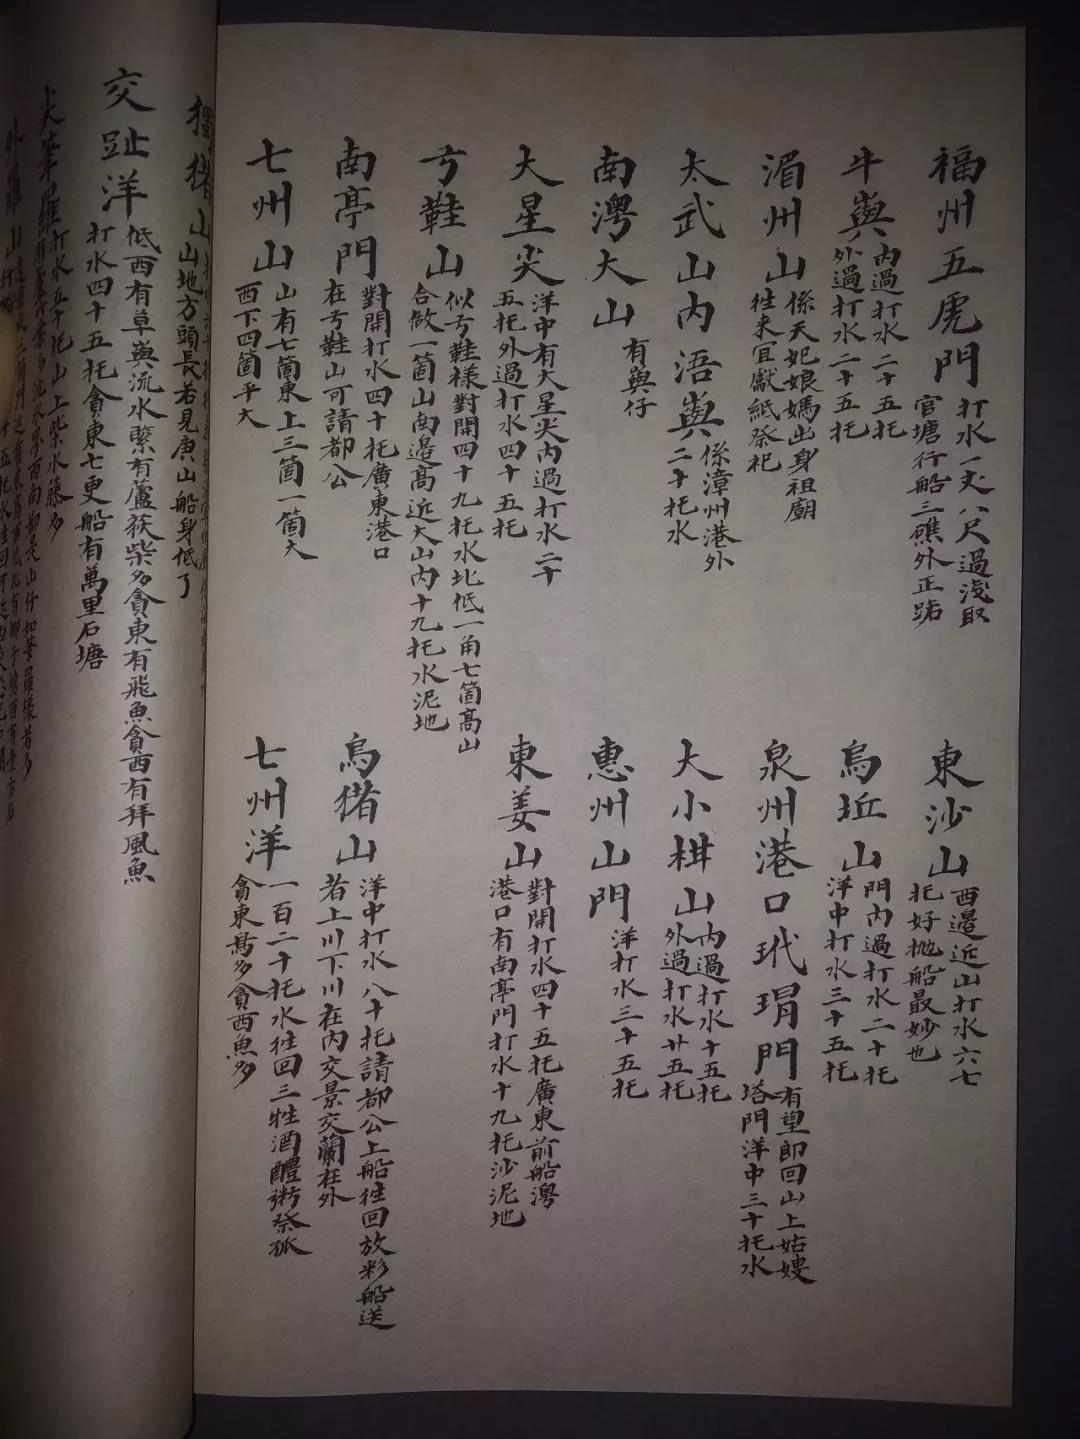 福州五虎門
打水一丈八尺過淺取
官塘行船三礁外正路
東沙山
西邉近山打水六七
托好抛船最妙也
牛㠘
内過打水二十五托
外過打水二十五托
烏坵山
門内過打水二十托
洋中打水三十五托
湄州山
係天妃娘媽出身祖廟
徃来宜獻紙祭祀
泉州港口玳瑁門
有望郎回山上姑嫂
塔門洋中三十托水
太武山内浯㠘
係漳州港外
二十托水
大小柑山
内過打水十五托
外過打水廿五托
南澳大山
有㠘仔
惠州山門
洋打水三十五托
大星尖
洋中有大星尖内過打水二十
五托外過打水四十五托
東姜山
對開打水四十五托廣東前船澳
港口有南亭門打水十九托沙泥地
弓鞋山
似弓鞋様對開四十九托水北低一角七箇高山
合做一箇山南邉高近大山内十九托水泥地
南亭門
對開打水四十托廣東港口
在弓鞋山可請都公
烏猪山
洋中打水八十托請都公上船徃回放彩船送
者上川下川在内交景交蘭在外
七州山
山有七箇東上三箇一箇大
西下四箇平大
七州洋
一百二十托水徃回三牲酒醴粥祭孤
貪東鳥多貪西魚多
獨猪山
山地方頭長若見庚山船身低了
交趾洋
低西有草㠘流水緊有蘆荻柴多貪東有飛魚貪西有拜風魚
打水四十五托貪東七更船有萬里石塘
尖筆羅
打水五十托山上柴水藤多
外羅山